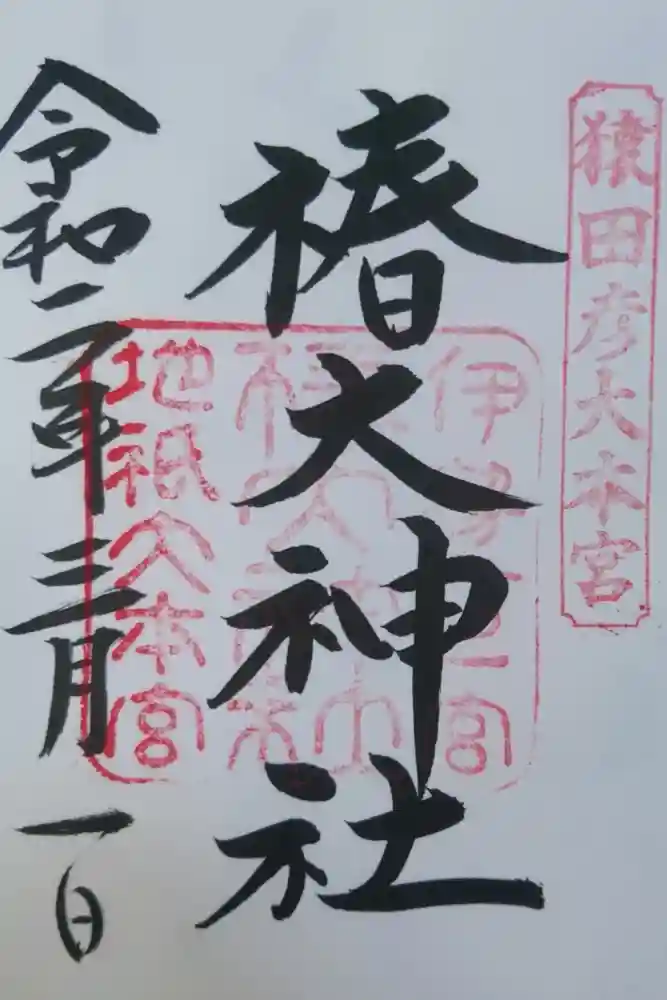 猿田彦大本宮
椿大神社
伊勢一宮
椿大神社
地祇大本宮
令和二年三月一日